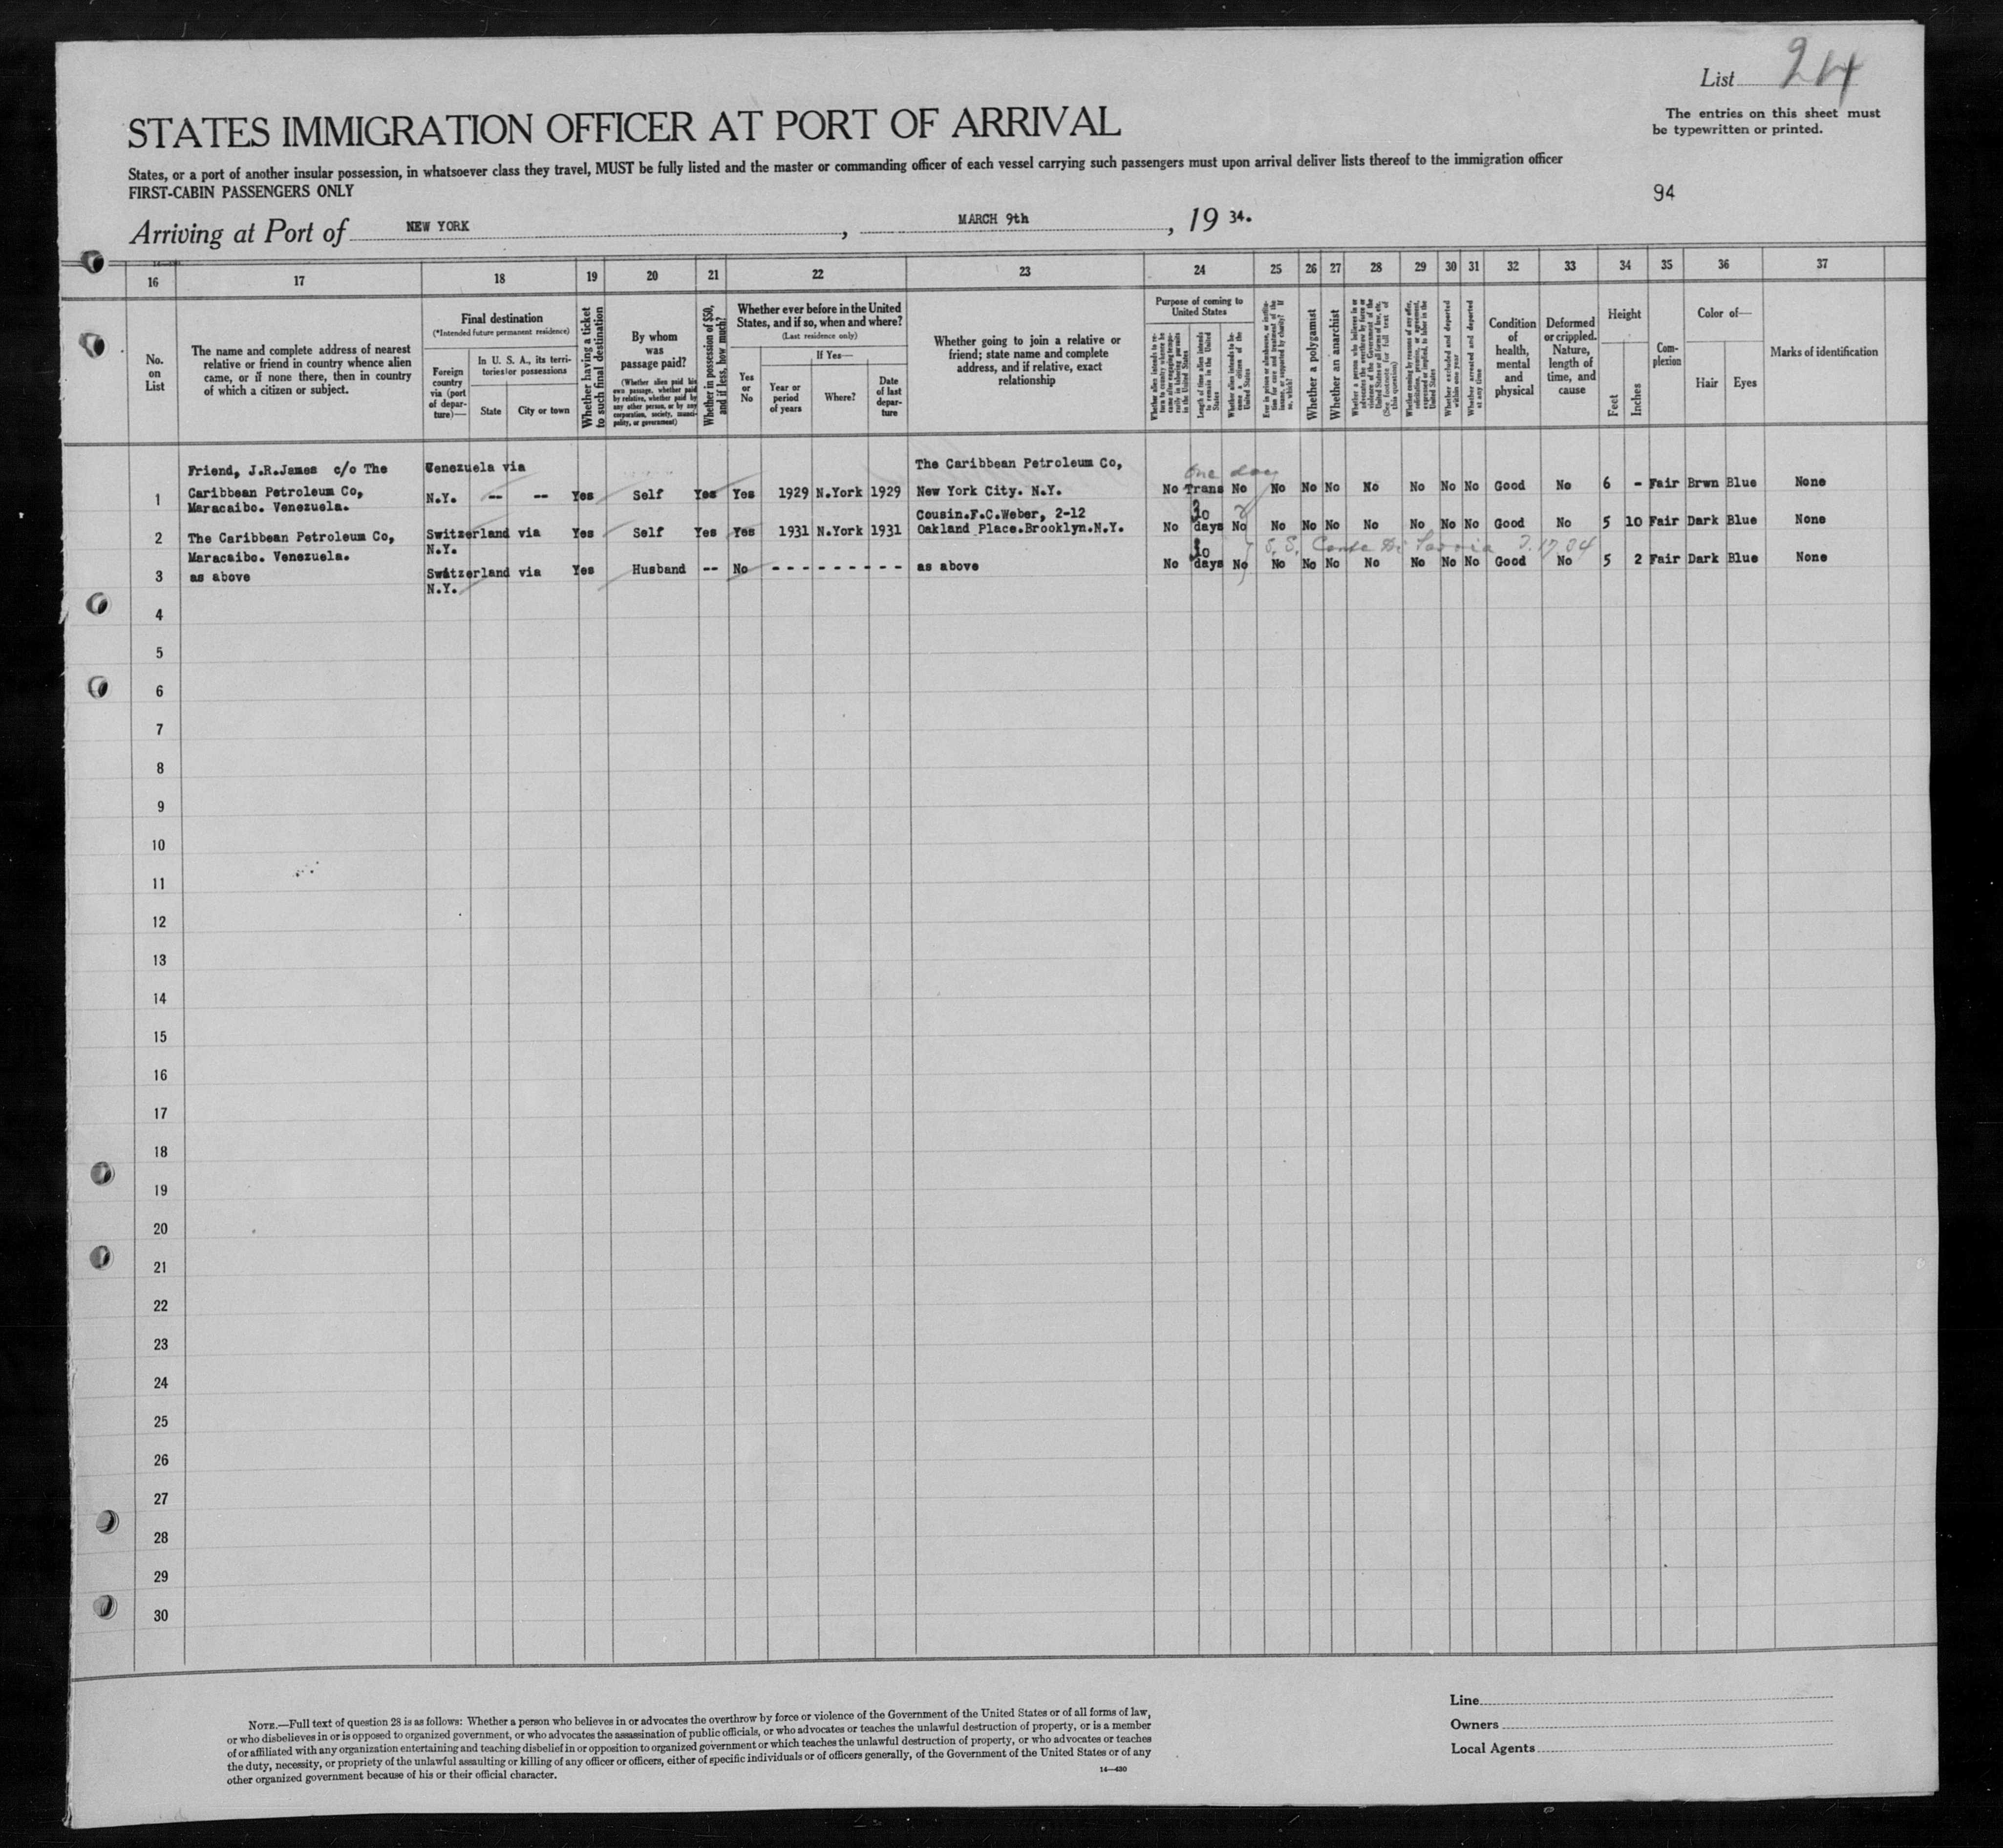 List 24
STATES IMMIGRATION OFFICER AT PORT OF ARRIVAL
The entries on this sheet must
be typewritten or printed.
States, or a port of another insular possession, in whatsoever class they travel, MUST be fully listed and the master or commanding officer of each vessel carrying such passengers must upon arrival deliver lists thereof to the immigration officer
FIRST-CABIN PASSENGERS ONLY
94
Arriving at Port of NEW YORK, MARCH 9th, 19 34.
16 17 18 19 20 21 22 23 24 25 26 27 28 29 30 31 32 33 34 35 36 37
No.
on
List
The name and complete address of nearest
relative or friend in country whence alien
came, or if none there, then in country
of which a citizen or subject.
Final destination
(*Intended future permanent residence)
Foreign
country
via (port
of depar-
ture)—
In U. S. A., its terri-
tories or possessions
State
City or town
Whether having a ticket
to such final destination
By whom
was
passage paid?
(Whether alien paid his
own passage, whether paid
by relative, whether paid by
any other person, or by any
corporation, society, munici-
pality, or government)
Whether in possession of $50,
and if less, how much?
Whether ever before in the United
States, and if so, when and where?
(Last residence only)
Yes
or
No
If Yes—
Year or
period
of years
Where?
Date
of last
depar-
ture
Whether going to join a relative or
friend; state name and complete
address, and if relative, exact
relationship
Purpose of coming to
United States
Whether alien intends to re-
turn to country whence he
came after engaging tempo-
rarily in laboring pursuits
in the United States
Length of time alien intends
to remain in the United
States
Whether alien intends to be-
come a citizen of the
United States
Ever in prison or almshouse, or institu-
tion for care and treatment of the
insane, or supported by charity? If
so, which?
Whether a polygamist
Whether an anarchist
Whether a person who believes in or
advocates the overthrow by force or
violence of the Government of the
United States or all forms of law, etc.
(See footnote for full text of
this question)
Whether coming by reason of any offer,
solicitation, promise, or agreement,
expressed or implied, to labor in the
United States
Whether excluded and deported
within one year
Whether arrested and deported
at any time
Condition
of
health,
mental
and
physical
Deformed
or crippled.
Nature,
length of
time, and
cause
Height
Feet
Inches
Com-
plexion
Color of—
Hair
Eyes
Marks of identification
Friend, J.R.James c/o The Venezuela via The Caribbean Petroleum Co, One day
1 Caribbean Petroleum Co, N.Y. -- -- Yes Self Yes Yes 1929 N.York 1929 New York City. N.Y. No Trans No No No No No No No No Good No 6 - Fair Brwn Blue None
Maracaibo. Venezuela. Cousin.F.C.Weber, 2-12 10
2 The Caribbean Petroleum Co, Switzerland via Yes Self Yes Yes 1931 N.York 1931 Oakland Place.Brooklyn.N.Y. No days No No No No No No No No Good No 5 10 Fair Dark Blue None
Maracaibo. Venezuela. N.Y. 10 S.S. Conte Di Savoia 3.17.34
3 as above Switzerland via Yes Husband -- No - - - - - - - - - as above No days No No No No No No No No Good No 5 2 Fair Dark Blue None
N.Y.
4
5
6
7
8
9
10
11
12
13
14
15
16
17
18
19
20
21
22
23
24
25
26
27
28
29
30
NOTE.—Full text of question 28 is as follows: Whether a person who believes in or advocates the overthrow by force or violence of the Government of the United States or of all forms of law,
or who disbelieves in or is opposed to organized government, or who advocates the assassination of public officials, or who advocates or teaches the unlawful destruction of property, or is a member
of or affiliated with any organization entertaining and teaching disbelief in or opposition to organized government or which teaches the unlawful destruction of property, or who advocates or teaches
the duty, necessity, or propriety of the unlawful assaulting or killing of any officer or officers, either of specific individuals or of officers generally, of the Government of the United States or of any
other organized government because of his or their official character.
14—430
Line
Owners
Local Agents